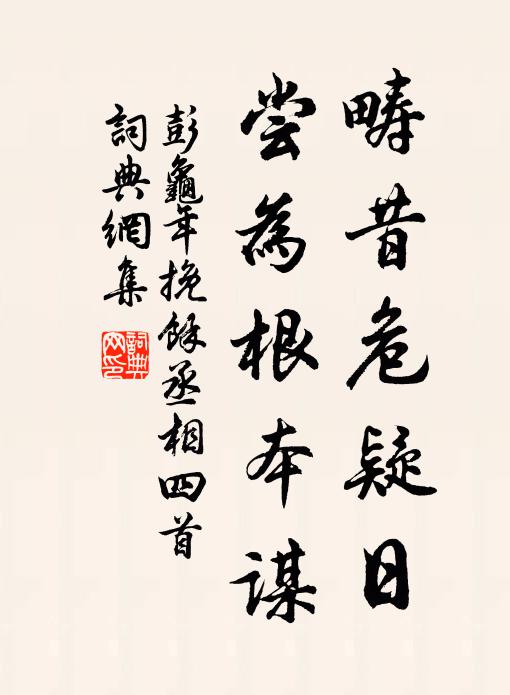 疇昔危疑日
尝為根本謀
彭龜年挽餘丞相四首
詞典網集
詞典網印